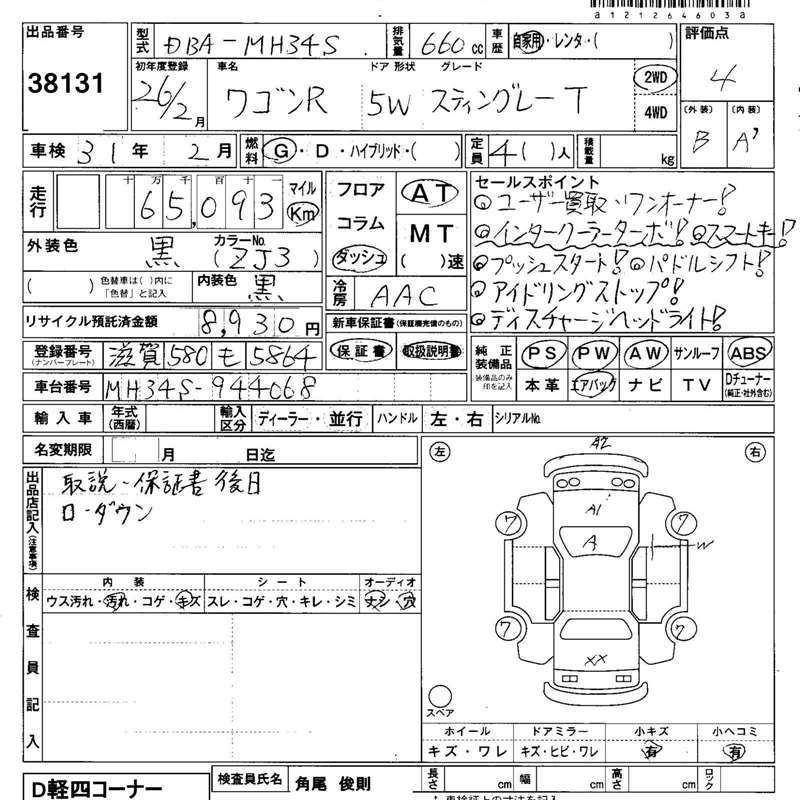 a1212646038a
出品番号 38131
型式 DBA-MH34S 排気量 660cc 車歴 自家用・レンタ・( )
評価点 4
初年度登録 26/2月 車名 ワゴンR ドア形状 5W グレード スティングレーT 2WD 4WD
(外装) B (内装) A'
車検 31年 2月 燃料 G・D・ハイブリッド・( ) 定員 4( )人 積載量 kg
走行 十万千百十一 65,093 マイル Km
フロア コラム ダッシュ AT MT ( )速
セールスポイント
◎ユーザー買取・ワンオーナー!
◎インタークーラーターボ! ◎スマートキー!
◎プッシュスタート! ◎パドルシフト!
◎アイドリングストップ!
◎ディスチャージヘッドライト!
外装色 黒 カラーNo. (ZJ3)
( ) 色替車は( )内に「色替」と記入 内装色 黒
冷房 AAC
リサイクル預託済金額 8,930円
新車保証書(保証継完備のもの)
保証書 取扱説明書
登録番号(ナンバープレート) 滋賀 580 も 5864
純正装備品 装備品のみ印を記入
PS PW AW サンルーフ ABS
本革 エアバッグ ナビ TV Dチューナー(純正・社外含む)
車台番号 MH34S-944068
輸入車 年式(西暦) 輸入区分 ディーラー・並行 ハンドル 左・右 シリアルNo.
名変期限 月 日迄
出品店記入(注意事項)
取説-保証書後日
ローダウン
検査員記入
内装 シート オーディオ
ウス汚れ・汚れ・コゲ・キズ スレ・コゲ・穴・キレ・シミ ナシ・穴
左 右
A2
A1
A
ワ ワ
W
ワ ワ
XX
スペア
ホイール ドアミラー 小キズ 小ヘコミ
キズ・ワレ キズ・ヒビ・ワレ 有 有
D軽四コーナー
検査員氏名 角尾 俊則
長さ cm 幅 cm 高さ cm ロック